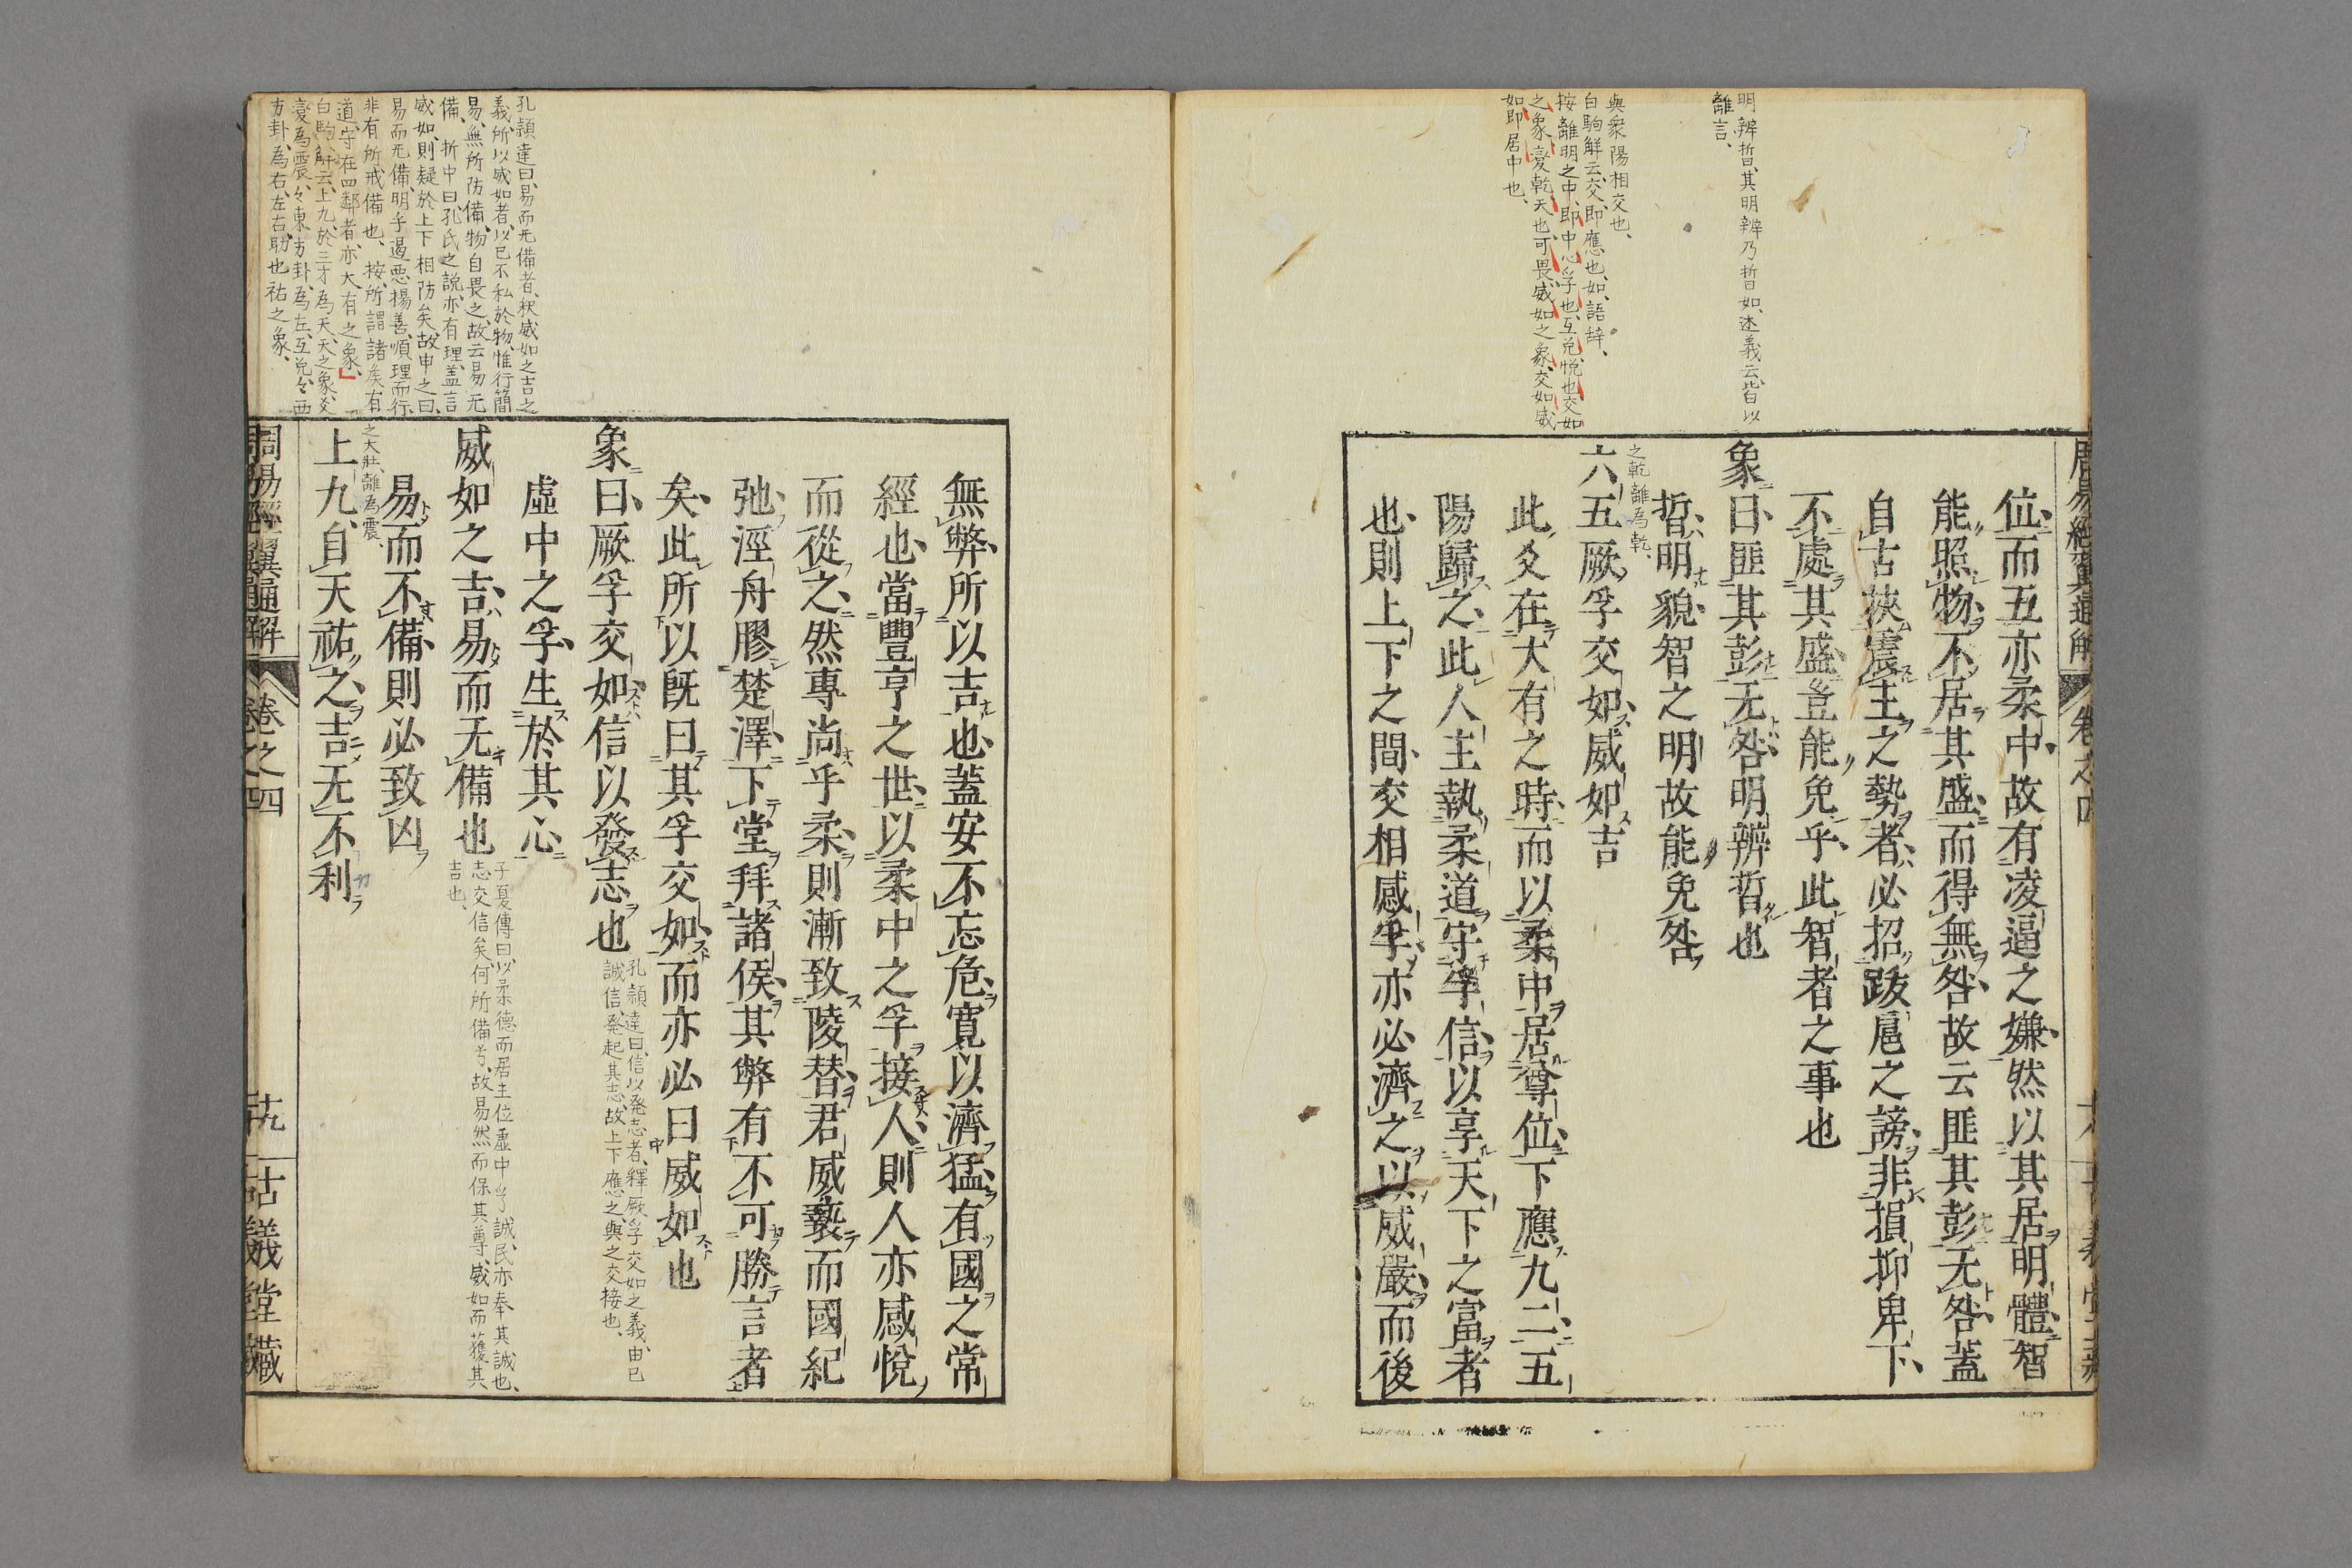 明辨晢、其明辨乃晢如、述義云、皆以
離言、
與衆陽相交也、
白駒解云、交、即應也、如、語辞、
按離明之中、即中心孚也、互兌、悅也、交如
之象、変乾、天也、可畏、威如之象、交如威
如即居中也、
周易經翼通解
卷之四
位而五亦柔中故有凌逼之嫌然以其居明體智
能照物不居其盛而得無咎故云匪其彭无咎蓋
自古挾震主之勢者必招跋扈之謗非損抑卑下
不處其盛豈能免乎此智者之事也
象曰匪其彭无咎明辨晢也
晢明貌智之明故能免咎
之乾、離為乾、
六五厥孚交如威如吉
此爻在大有之時而以柔中居尊位下應九二五
陽歸之此人主執柔道守孚信以享天下之富者
也則上下之間交相感孚亦必濟之以威嚴而後
孔頴達曰、易而无備者、釈威如之吉之
義、所以威如者、以已不私於物、惟行簡
易、無所防備、物自畏之、故云易无
備、折中曰、孔氏之説亦有理、盖言
威如、則疑於上下相防矣、故申之曰、
易而无備、明乎遏悪揚善、順理而行、
非有所戒備也、按、所謂諸矦有
道、守在四鄰者、亦大有之象、
白駒解云、上九、於三才為天、天之象、爻
変為震、々東方卦、為左、互兌、々西
方卦、為右、左右助也、祐之象、
無弊所以吉也蓋安不忘危寬以濟猛有國之常
經也當豐亨之世以柔中之孚接人則人亦感悅
而從之然專尚乎柔則漸致陵替君威褻而國紀
弛涇舟膠楚澤下堂拜諸侯其弊有不可勝言者
矣此所以旣曰其孚交如而亦必曰威如也
象曰厥孚交如信以發志也
孔頴達曰、信以発志者、釋厥孚交如之義、由已
誠信、発起其志、故上下應之、與之交接也、
虛中之孚生於其心
威如之吉易而无備也
子夏傳曰、以柔德而居主位、虛中乎誠、民亦奉其誠也、
志交信矣、何所備乎、故易然而保其尊、威如而獲其
吉也、
易而不備則必致凶
之大壯、離為震、
上九自天祐之吉无不利
周易經翼通解
卷之四
十九
古義堂藏